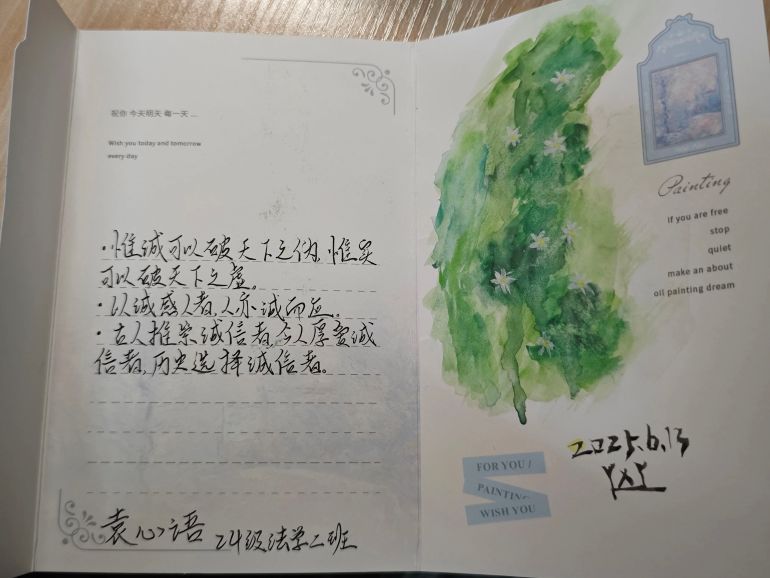 祝你 今天明天 每一天 ...
Wish you today and tomorrow
every day
·惟诚可以破天下之伪,惟实
可以破天下之虚。
·以诚感人者,人亦诚而应。
·古人推崇诚信者,今人厚爱诚
信者,历史选择诚信者。
袁心语 24级法学二班
Painting
if you are free
stop
quiet
make an about
oil painting dream
2025.6.13
YXY
FOR YOU /
PAINTING
WISH YOU